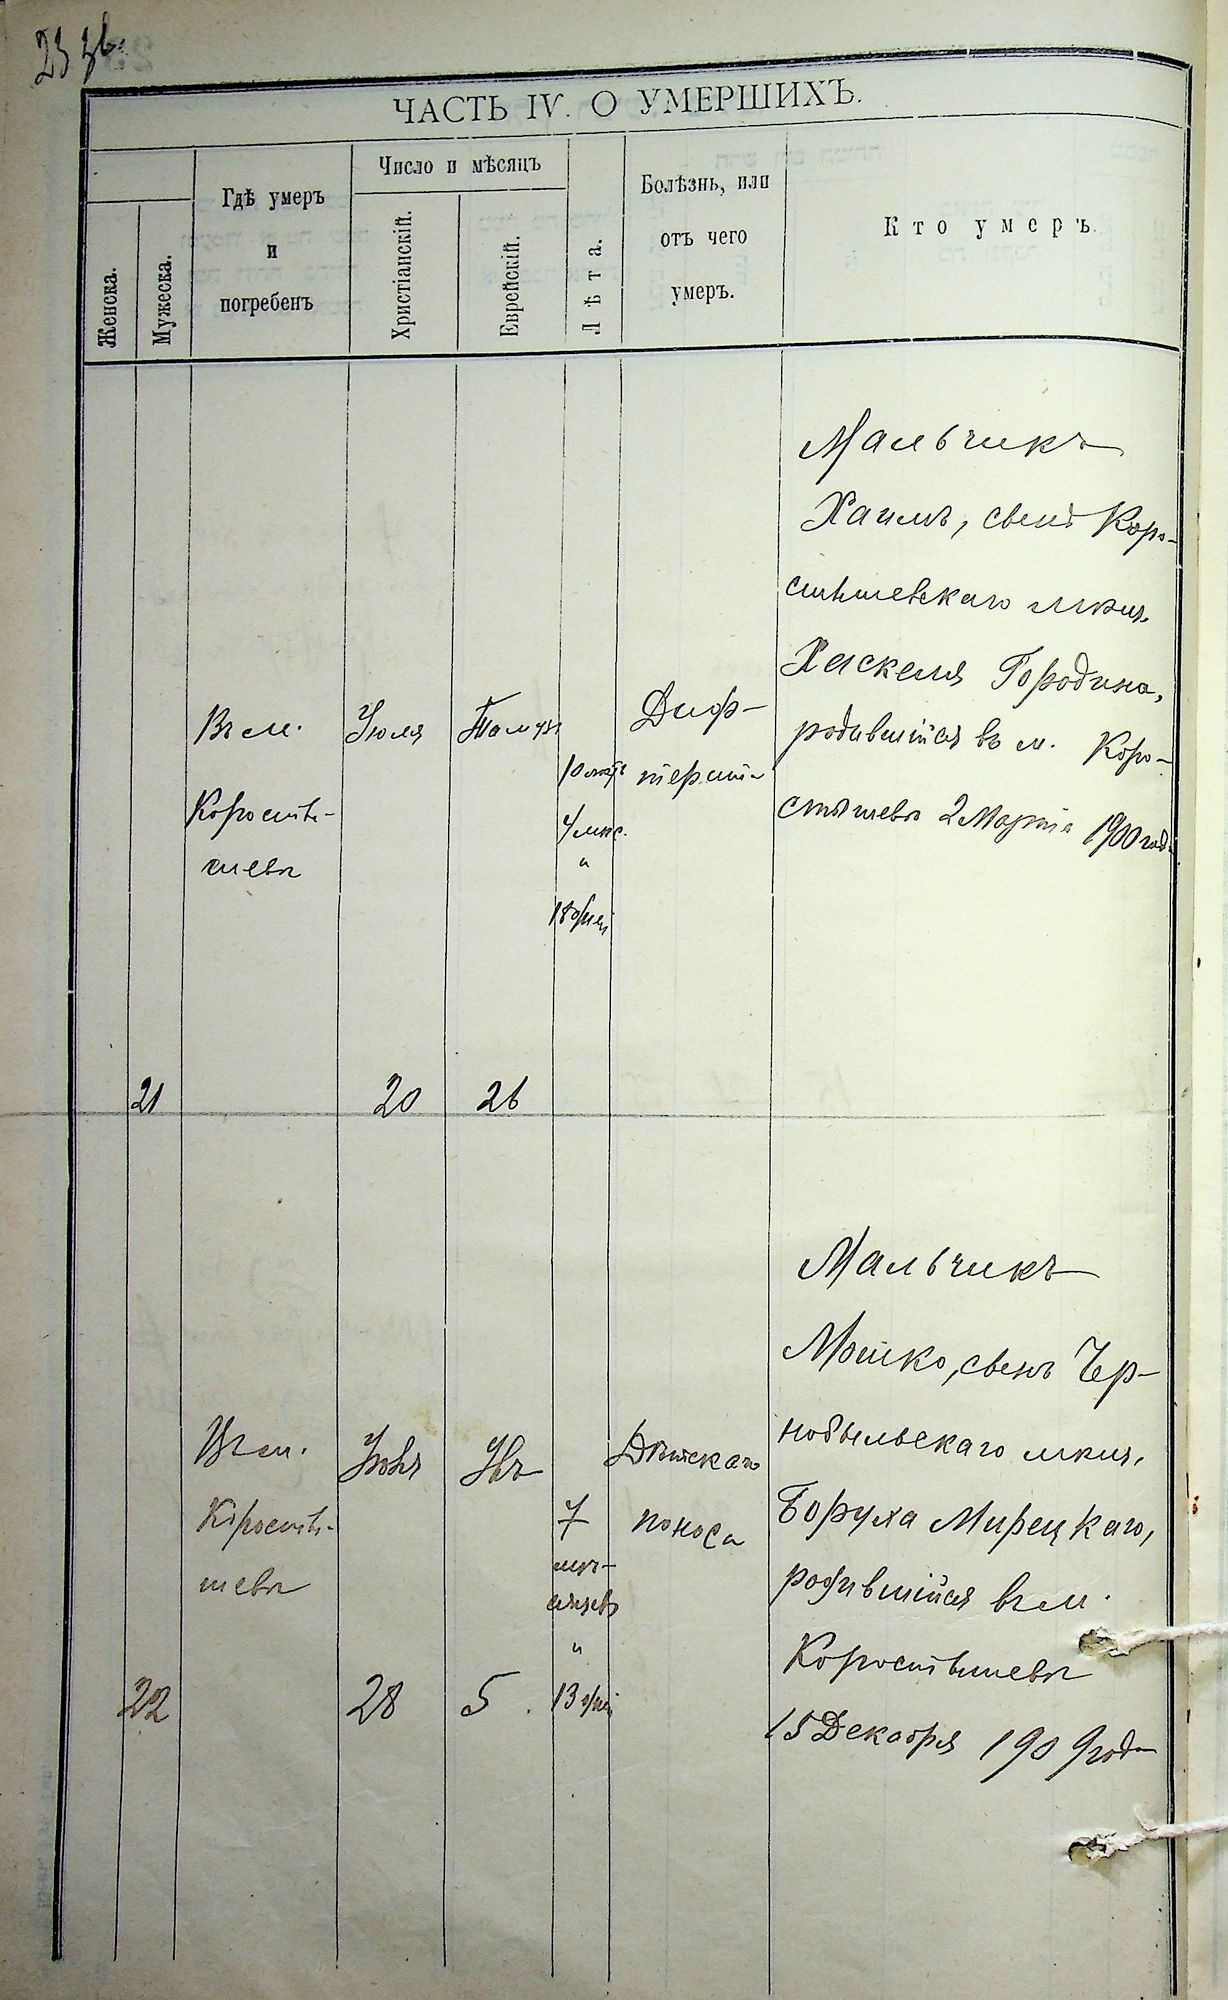 ЧАСТЬ IV. О УМЕРШИХЪ.
Женска.
Мужеска.
Гдѣ умеръ
и
погребенъ
Число и мѣсяцъ
Христіанскій.
Еврейскій.
Лѣта.
Болѣзнь, или
отъ чего
умеръ.
Кто умеръ.
21
Въ м.
Коросты-
шевѣ
Іюля
20
Тамузъ
26
10 лѣтъ
4 мѣс.
и
18 дней
Диф-
терита
Мальчикъ
Хаимъ, сынъ Коро-
стышевскаго мѣщ.
Хаскеля Городина,
родившійся въ м. Коро-
стышевѣ 2 Марта 1900 года
22
Въ м.
Коросты-
шевѣ
28
5
7
мѣ-
сяцевъ
и
13 дней
Дѣтскаго
поноса
Мальчикъ
Мошко, сынъ Чер-
нобыльскаго мѣщ.
Боруха Мирецкаго,
родившійся въ м.
Коростышевѣ
15 Декабря 1909 года